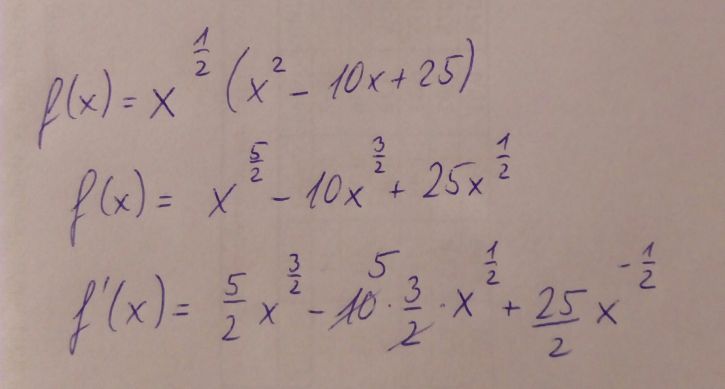 f(x) = x^{\frac{1}{2}} (x^2 - 10x + 25)
f(x) = x^{\frac{5}{2}} - 10x^{\frac{3}{2}} + 25x^{\frac{1}{2}}
f'(x) = \frac{5}{2} x^{\frac{3}{2}} - \cancel{10}^{5} \cdot \frac{3}{\cancel{2}} \cdot x^{\frac{1}{2}} + \frac{25}{2} x^{-\frac{1}{2}}